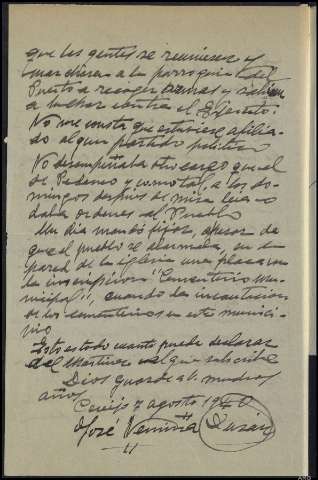 que las gentes se reuniesen y
marchasen a la parroquia del
Puerto a recoger armas y
a luchar contra el Ejercito.
No me consta que estuviese afilia-
do a algun partido politico
No desempeñaba otro cargo que el
de Pedaneo y como tal, a los do-
mingos despues de misa
daba ordenes al Pueblo
Un dia mandó fijar, a pesar de
que el pueblo se alarmaba, en la
pared de la iglesia una placa con
la inscripcion "Cementerio Mu-
nicipal", cuando la incautacion
de los cementerios en este munici-
pio
Esto es todo cuanto puede declarar
del Martinez el que subscribe
Dios guarde a V. muchos
años.
7 agosto 1940
José